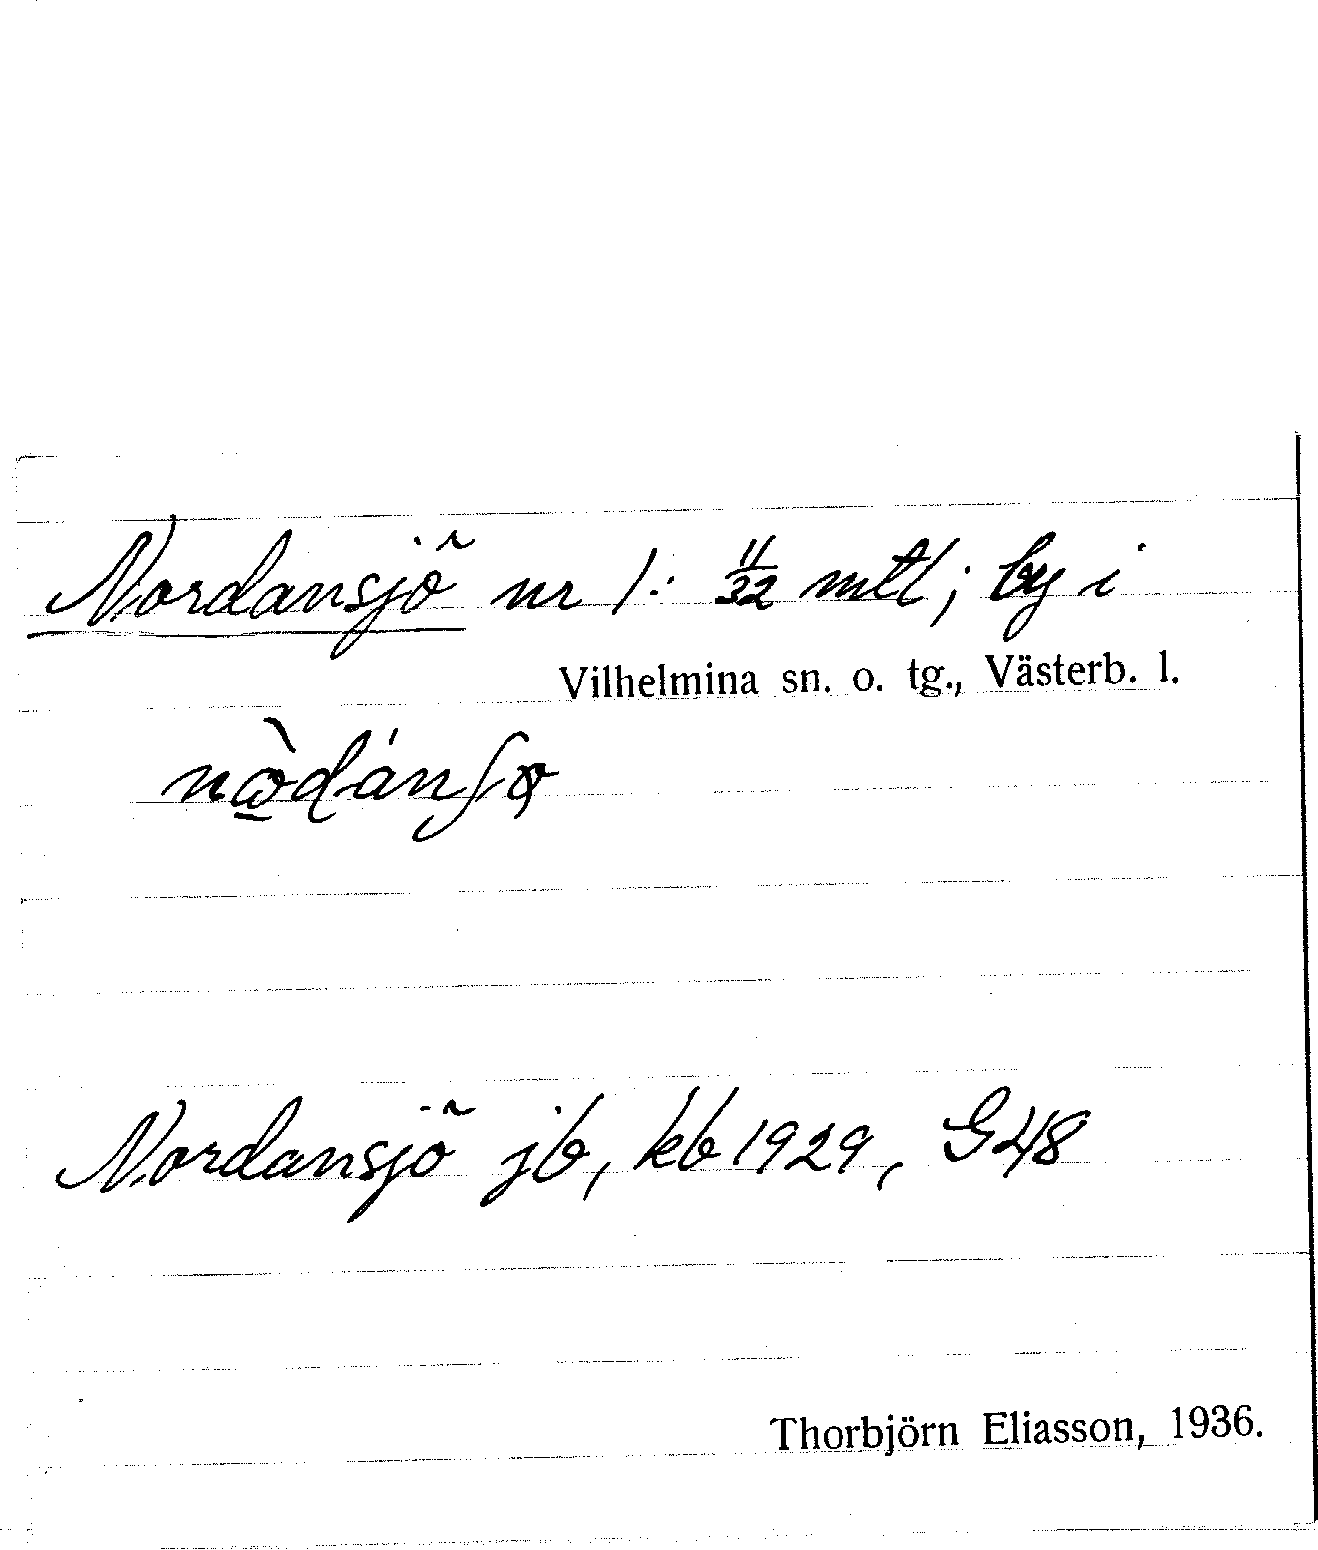 Nordansjö nr 1: 11/32 mtl; by i
Vilhelmina sn. o. tg., Västerb. l.
Nordansjö jb, kb 1929, G48
Thorbjörn Eliasson, 1936.